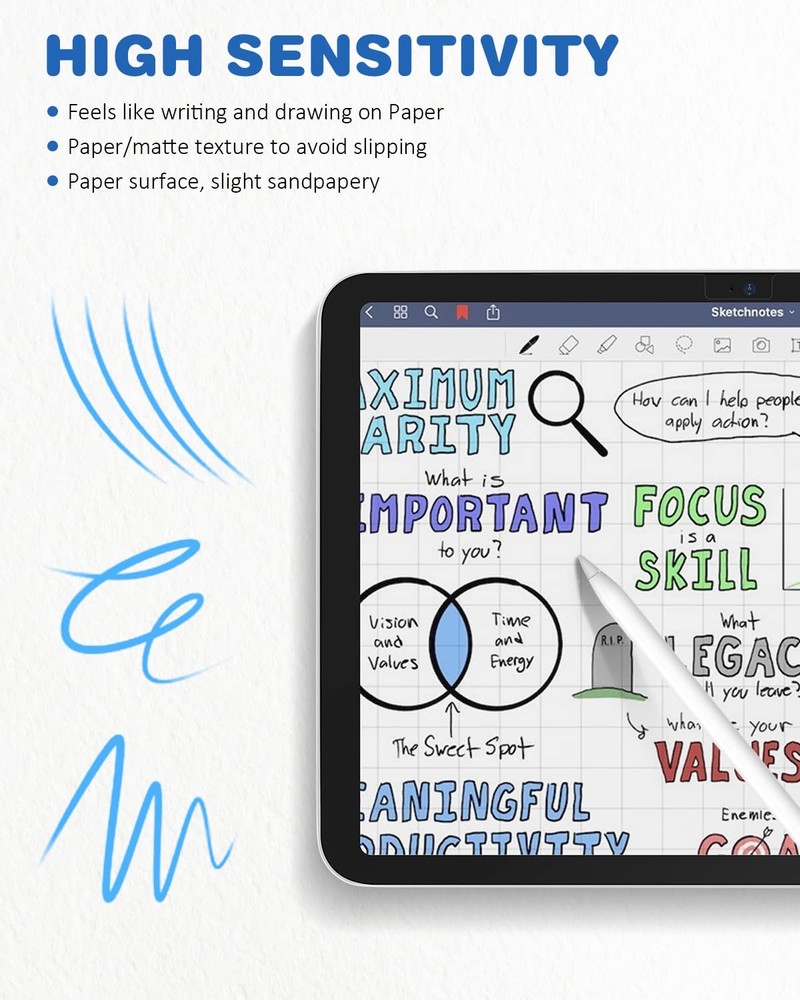 HIGH SENSITIVITY
Feels like writing and drawing on Paper
Paper/matte texture to avoid slipping
Paper surface, slight sandpapery
Sketchnotes
AXIMUM
ARITY
How can I help people
apply action?
What is
IMPORTANT
to you?
FOCUS
is a
SKILL
Vision
and
Values
Time
and
Energy
R.I.P.
What
LEGAC
you leave?
The Sweet Spot
your
VALUES
EANINGFUL
ODUCTIVITY
Enemie
GOA